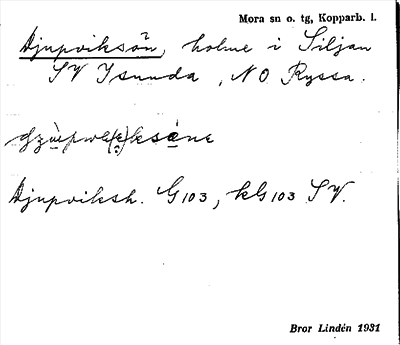 Mora sn o. tg, Kopparb. l.
Djupviksön, holme i Siljan
SV Isunda, NO Ryssa.
Djupviksh. G103, kG103 SV.
Bror Lindén 1931